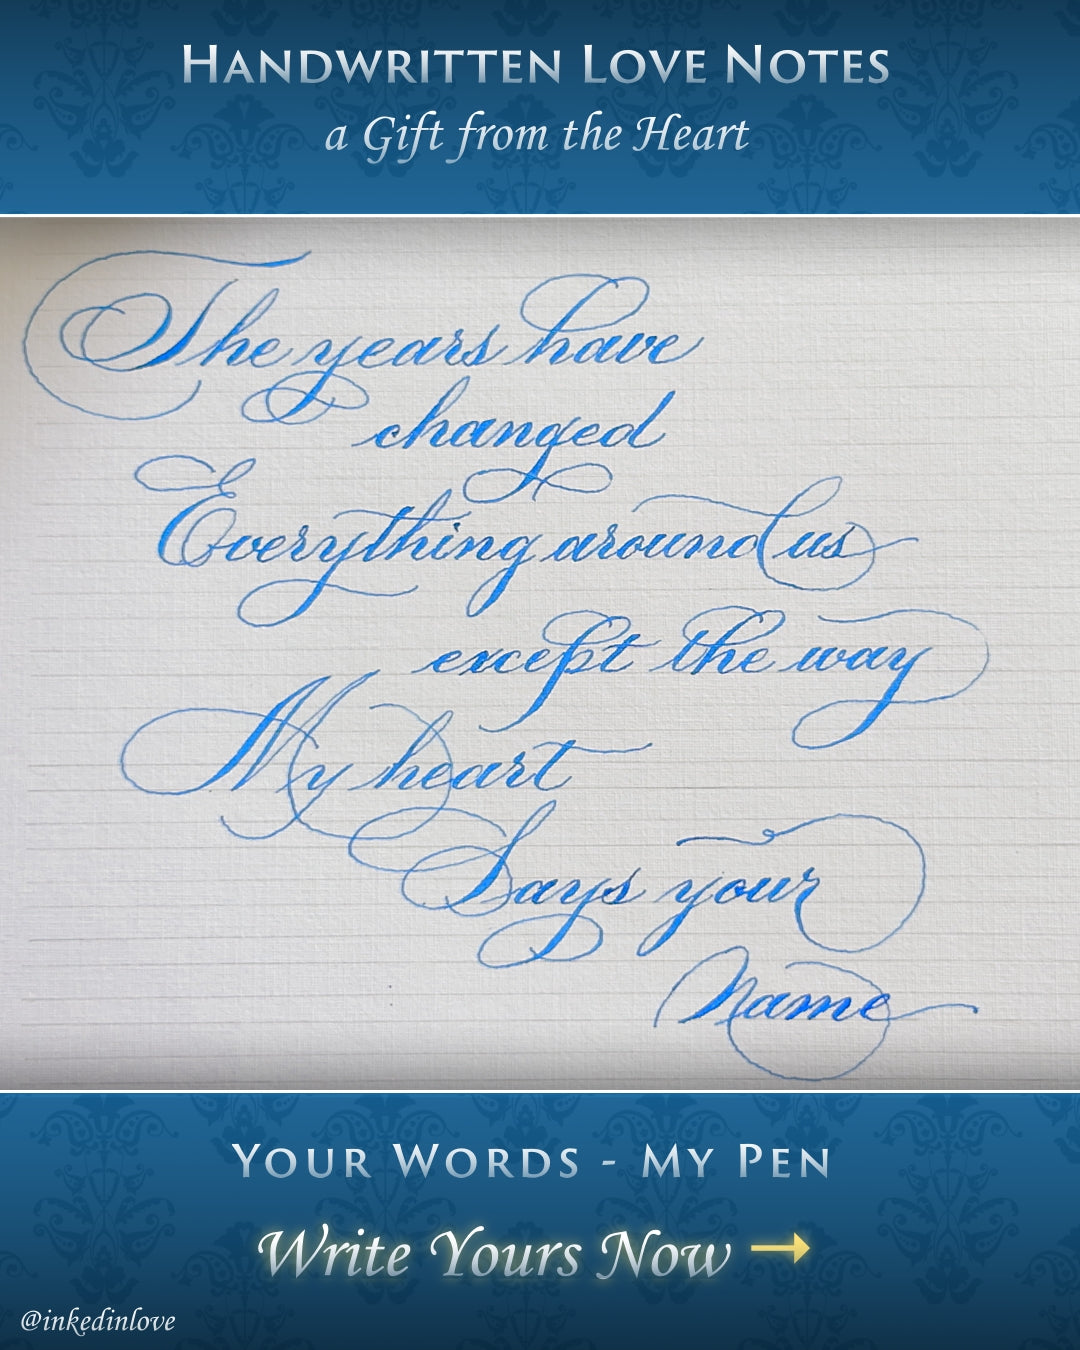 Handwritten Love Notes
a Gift from the Heart
The years have
changed
Everything around us
except the way
My heart
Says your
Name
Your Words - My Pen
Write Yours Now →
@inkedinlove